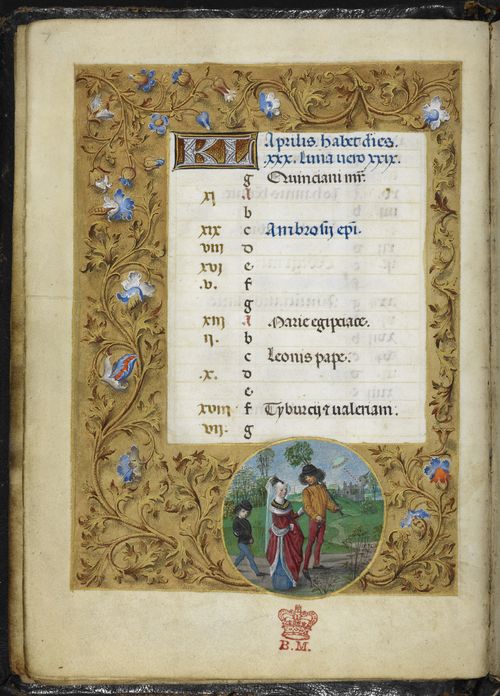 KL Aprilis habet dies.
xxx. luna vero xxix.
g Quinciani mr̄.
xi A
b
xix c Ambrosij epi.
viii d
xvi e
.v. f
g
xiii A Marie egipciace.
ii. b
c Leonis pape.
.x. d
e
xviii f Tyburcij & valeriani.
vii. g
B.M.